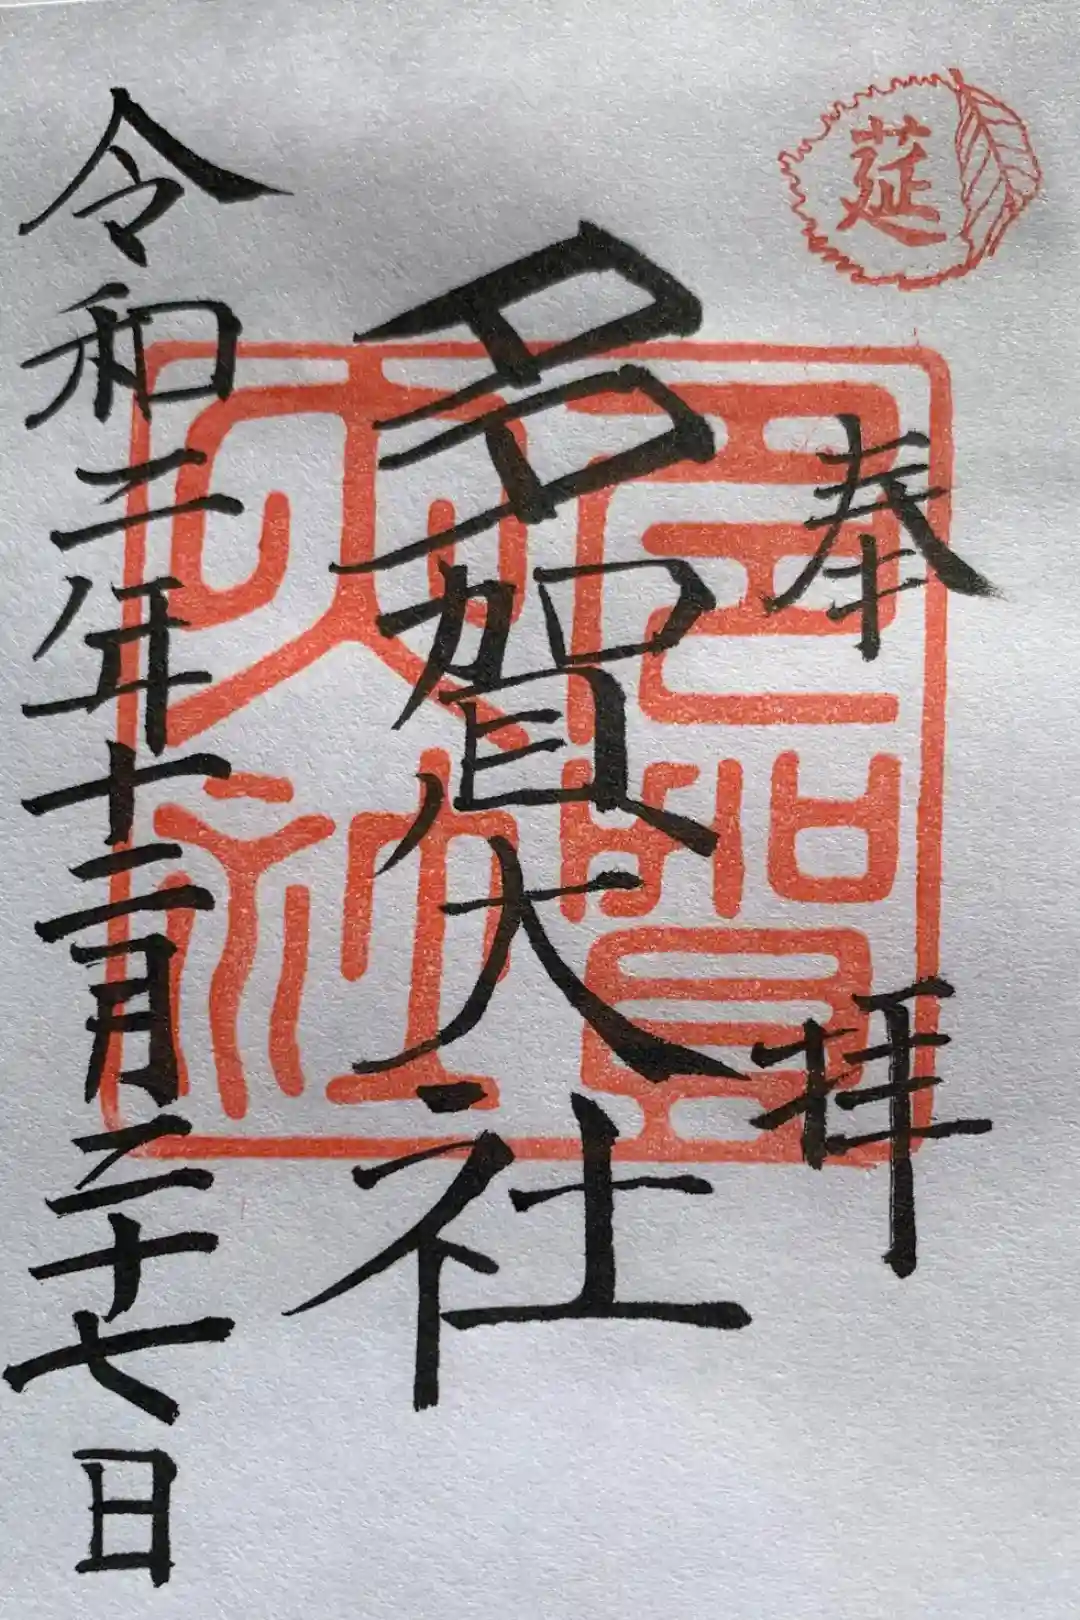 莚
奉拝
多賀大社
多賀
大社
令和三年十二月二十七日